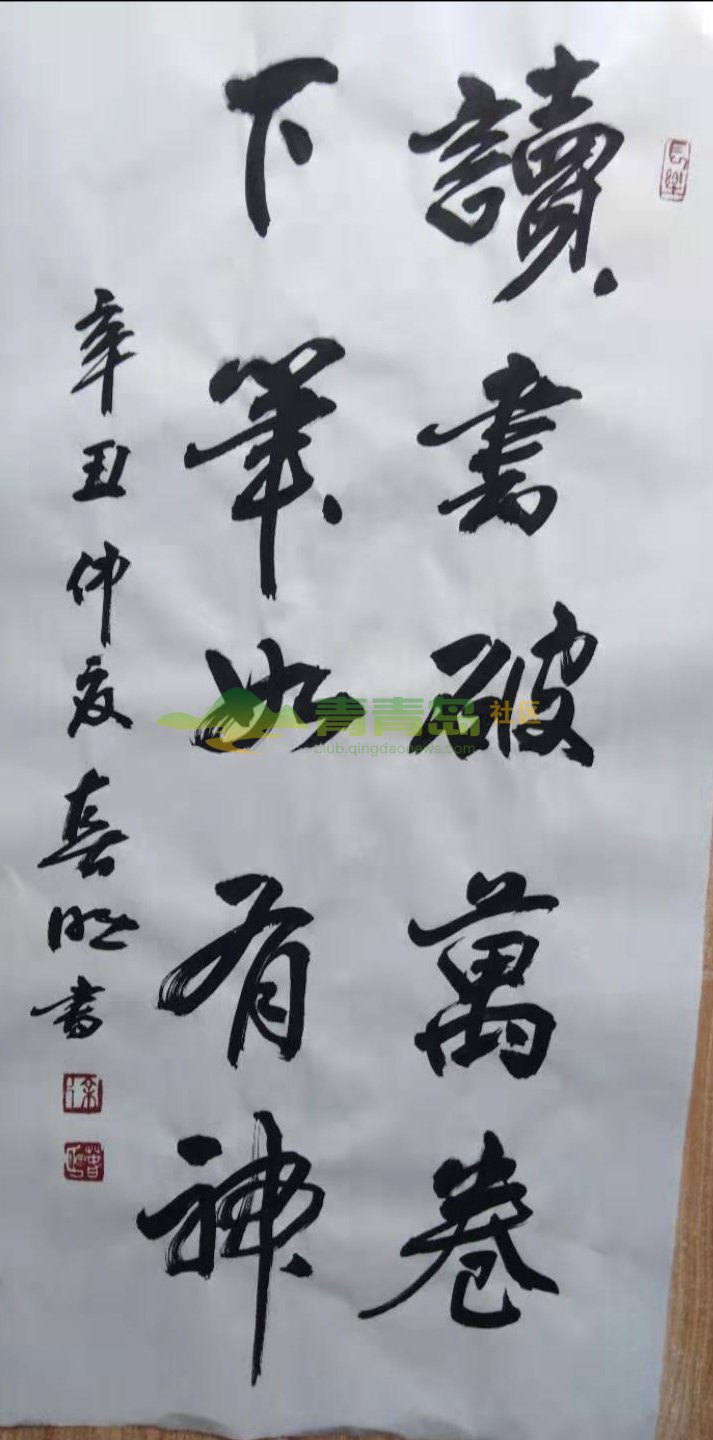 讀書破萬卷
下筆如有神
辛丑仲夏喜旺書
長樂
青青岛社区
club.qingdaonews.com